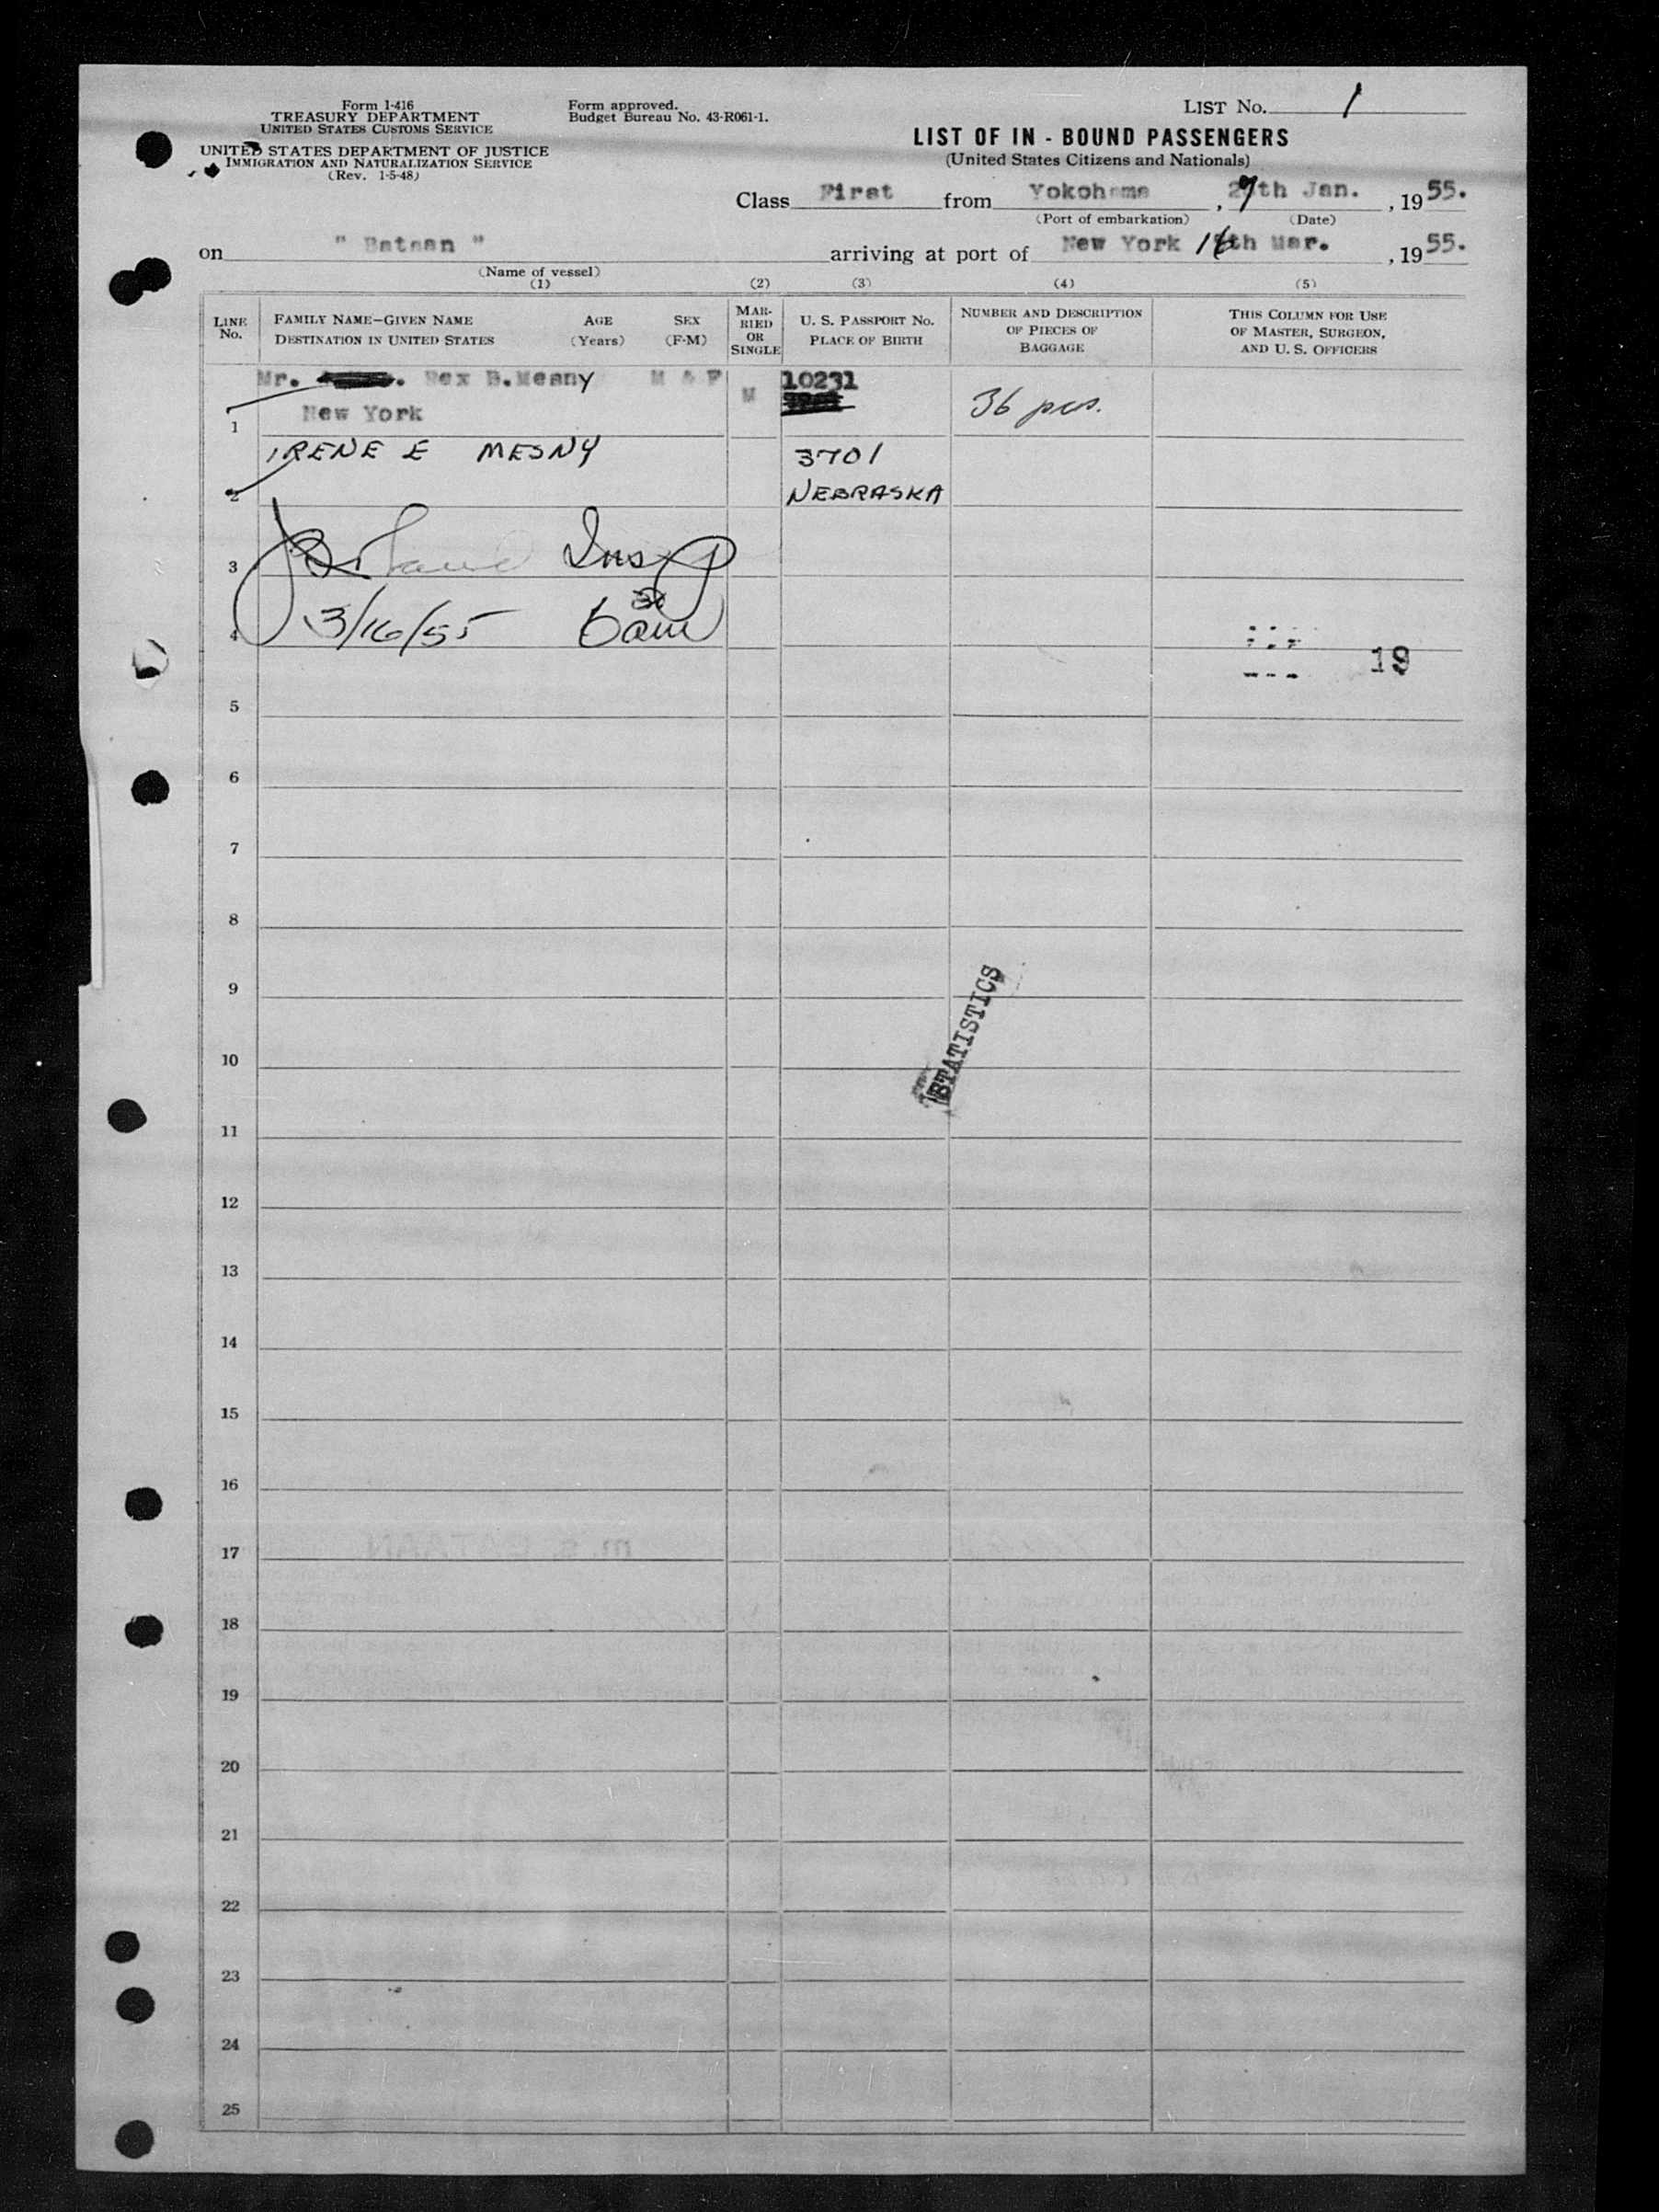 Form I-416
TREASURY DEPARTMENT
UNITED STATES CUSTOMS SERVICE
UNITED STATES DEPARTMENT OF JUSTICE
IMMIGRATION AND NATURALIZATION SERVICE
(Rev. 1-5-48)
Form approved.
Budget Bureau No. 43-R061-1.
LIST No. 1
LIST OF IN - BOUND PASSENGERS
(United States Citizens and Nationals)
Class First from Yokohama, 27th Jan., 1955.
(Port of embarkation) (Date)
on " Bataan " arriving at port of New York 16th Mar., 1955.
(Name of vessel)
(1) (2) (3) (4) (5)
LINE No.
FAMILY NAME—GIVEN NAME AGE SEX
DESTINATION IN UNITED STATES (Years) (F-M)
MARRIED OR SINGLE
U. S. PASSPORT No.
PLACE OF BIRTH
NUMBER AND DESCRIPTION OF PIECES OF BAGGAGE
THIS COLUMN FOR USE OF MASTER, SURGEON, AND U. S. OFFICERS
Mr. Rex B. Mesny M & F M 10231 36 pcs.
1 New York
IRENE E MESNY 3701
2 NEBRASKA
3 Insp
4 3/16/55 6 30 am
19
5
6
7
8
9
STATISTICS
10
11
12
13
14
15
16
17
m. s. BATAAN
18
19
20
21
22
23
24
25